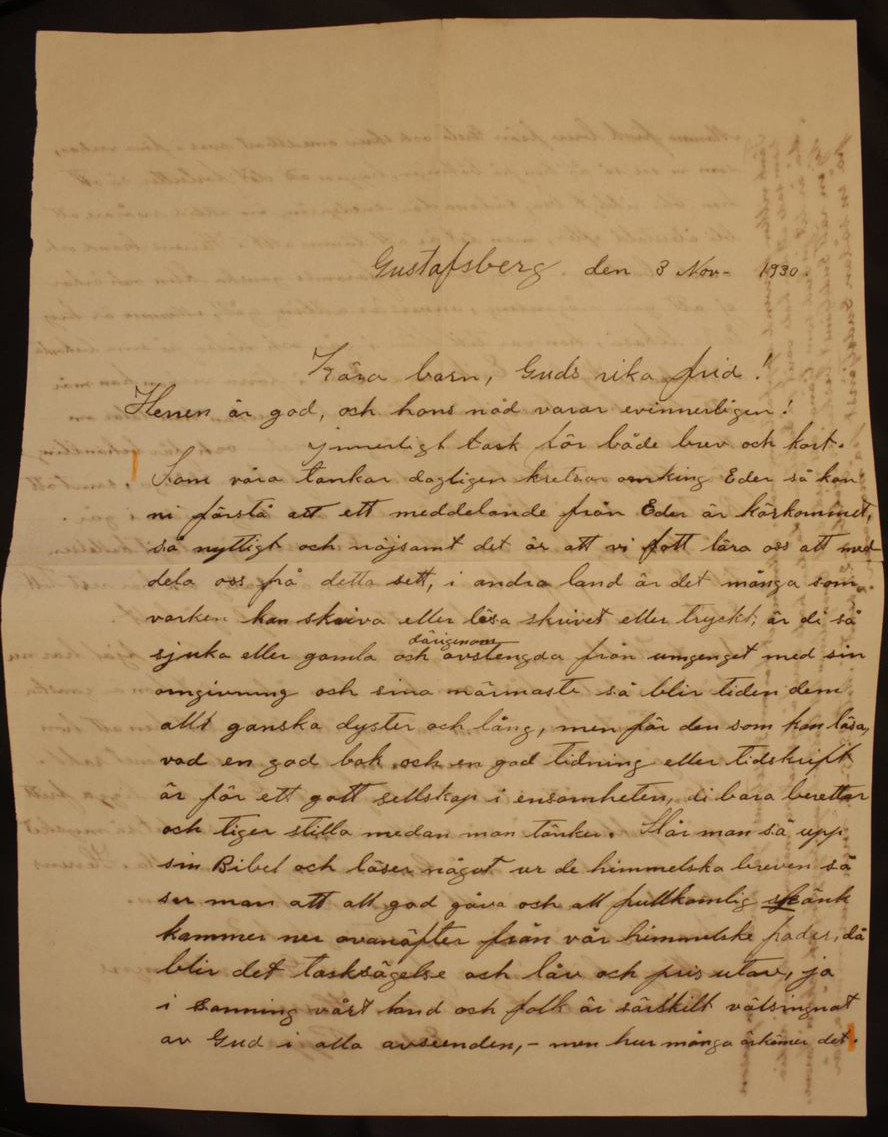 Gustafsberg den 3 Nov- 1930.
Kära barn, Guds rika frid!
Herren är god, och hans nåd varar evinnerligen!
Innerligt tack för både brev och kort.
Som våra tankar dagligen kretsar omkring Eder så kan
ni förstå att ett meddelande från Eder är kärkommet,
så nyttigt och nöjsamt det är att vi fått lära oss att med-
dela oss på detta sett, i andra land är det många som
varken kan skriva eller läsa skrivet eller tryckt; är di så
sjuka eller gamla och därigenom avstengda från umgenget med sin
omgivning och sina närmaste så blir tiden dem
allt ganska dyster och lång, men för den som kan läsa,
vad en god bok och en god tidning eller tidskrift
är för ett gott sellskap i ensomheten, di bara berettar
och tiger stilla medan man tänker. Slår man så upp
sin Bibel och läser något ur de himmelska breven så
ser man att all god gåva och all fullkomlig skänk
kommer ner ovanäfter från vår himmelske fader, då
blir det tacksägelse och låv och pris utav, ja
i sanning vårt land och folk är särskilt välsingnat
av Gud i alla avseenden, - men hur många ärkänner det.